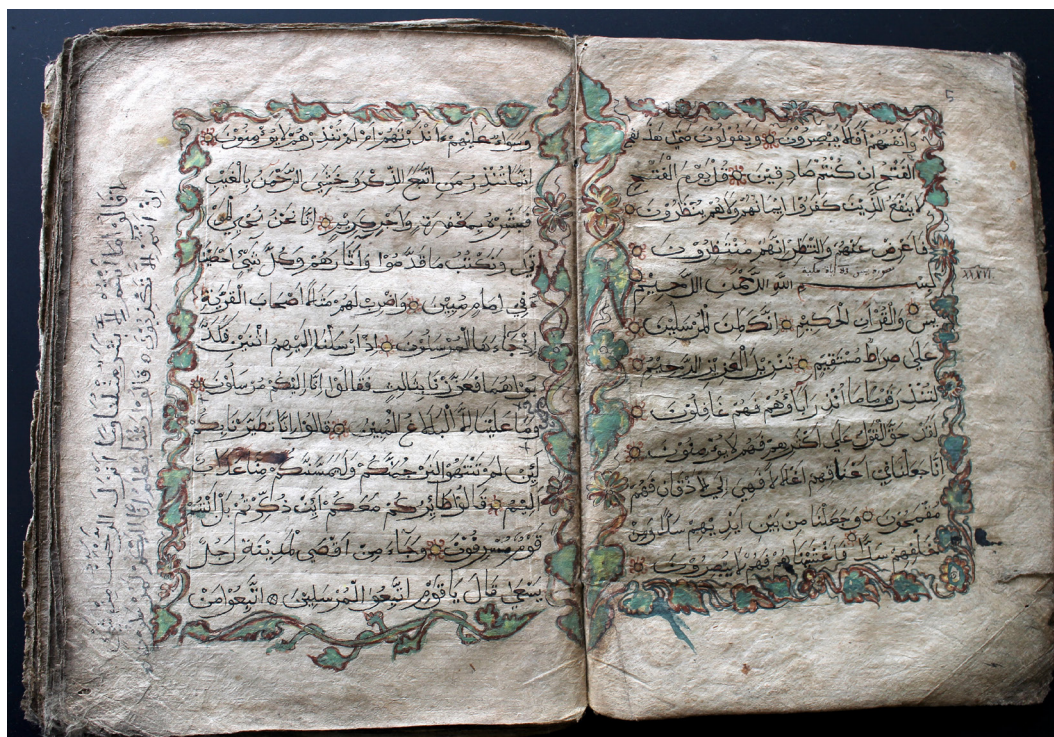 وانفسهم افلا يبصرون ويقولون متى هذا
الفتح ان كنتم صادقين قل يوم الفتح
لا ينفع الذين كفروا ايمانهم ولا هم ينظرون
فاعرض عنهم وانتظر انهم منتظرون
سورة يس اية مكية
بسم الله الرحمن الرحيم
يس والقران الحكيم انك لمن المرسلين
على صراط مستقيم تنزيل العزيز الرحيم
لتنذر قوما ما انذر آباؤهم فهم غافلون
لقد حق القول على اكثرهم فهم لا يؤمنون
انا جعلنا في اعناقهم اغلالا فهي الى الاذقان فهم
مقمحون وجعلنا من بين ايديهم سدا ومن
خلفهم سدا فاغشيناهم فهم لا يبصرون
وسواء عليهم ءانذرتهم ام لم تنذرهم لا يؤمنون
انما تنذر من اتبع الذكر وخشي الرحمن بالغيب
فبشره بمغفرة واجر كريم انا نحن نحي المو
تى ونكتب ما قدموا وآثارهم وكل شيء احصينا
ه في امام مبين واضرب لهم مثلا اصحاب القرية
اذ جاءها المرسلون اذ ارسلنا اليهم اثنين فكذ
بوهما فعززنا بثالث فقالوا انا اليكم مرسلون
وما علينا الا البلاغ المبين قالوا انا تطيرنا بكم
لئن لم تنتهوا لنرجمنكم وليمسنكم منا عذاب
اليم قالوا طائركم معكم ائن ذكرتم بل انتم
قوم مسرفون وجاء من اقصى المدينة رجل
يسعى قال يا قوم اتبعوا المرسلين اتبعوا من
قالوا ما انتم الا بشر مثلنا وما انزل الرحمن من شيء
ان انتم الا تكذبون قالوا ربنا يعلم انا اليكم لمرسلون